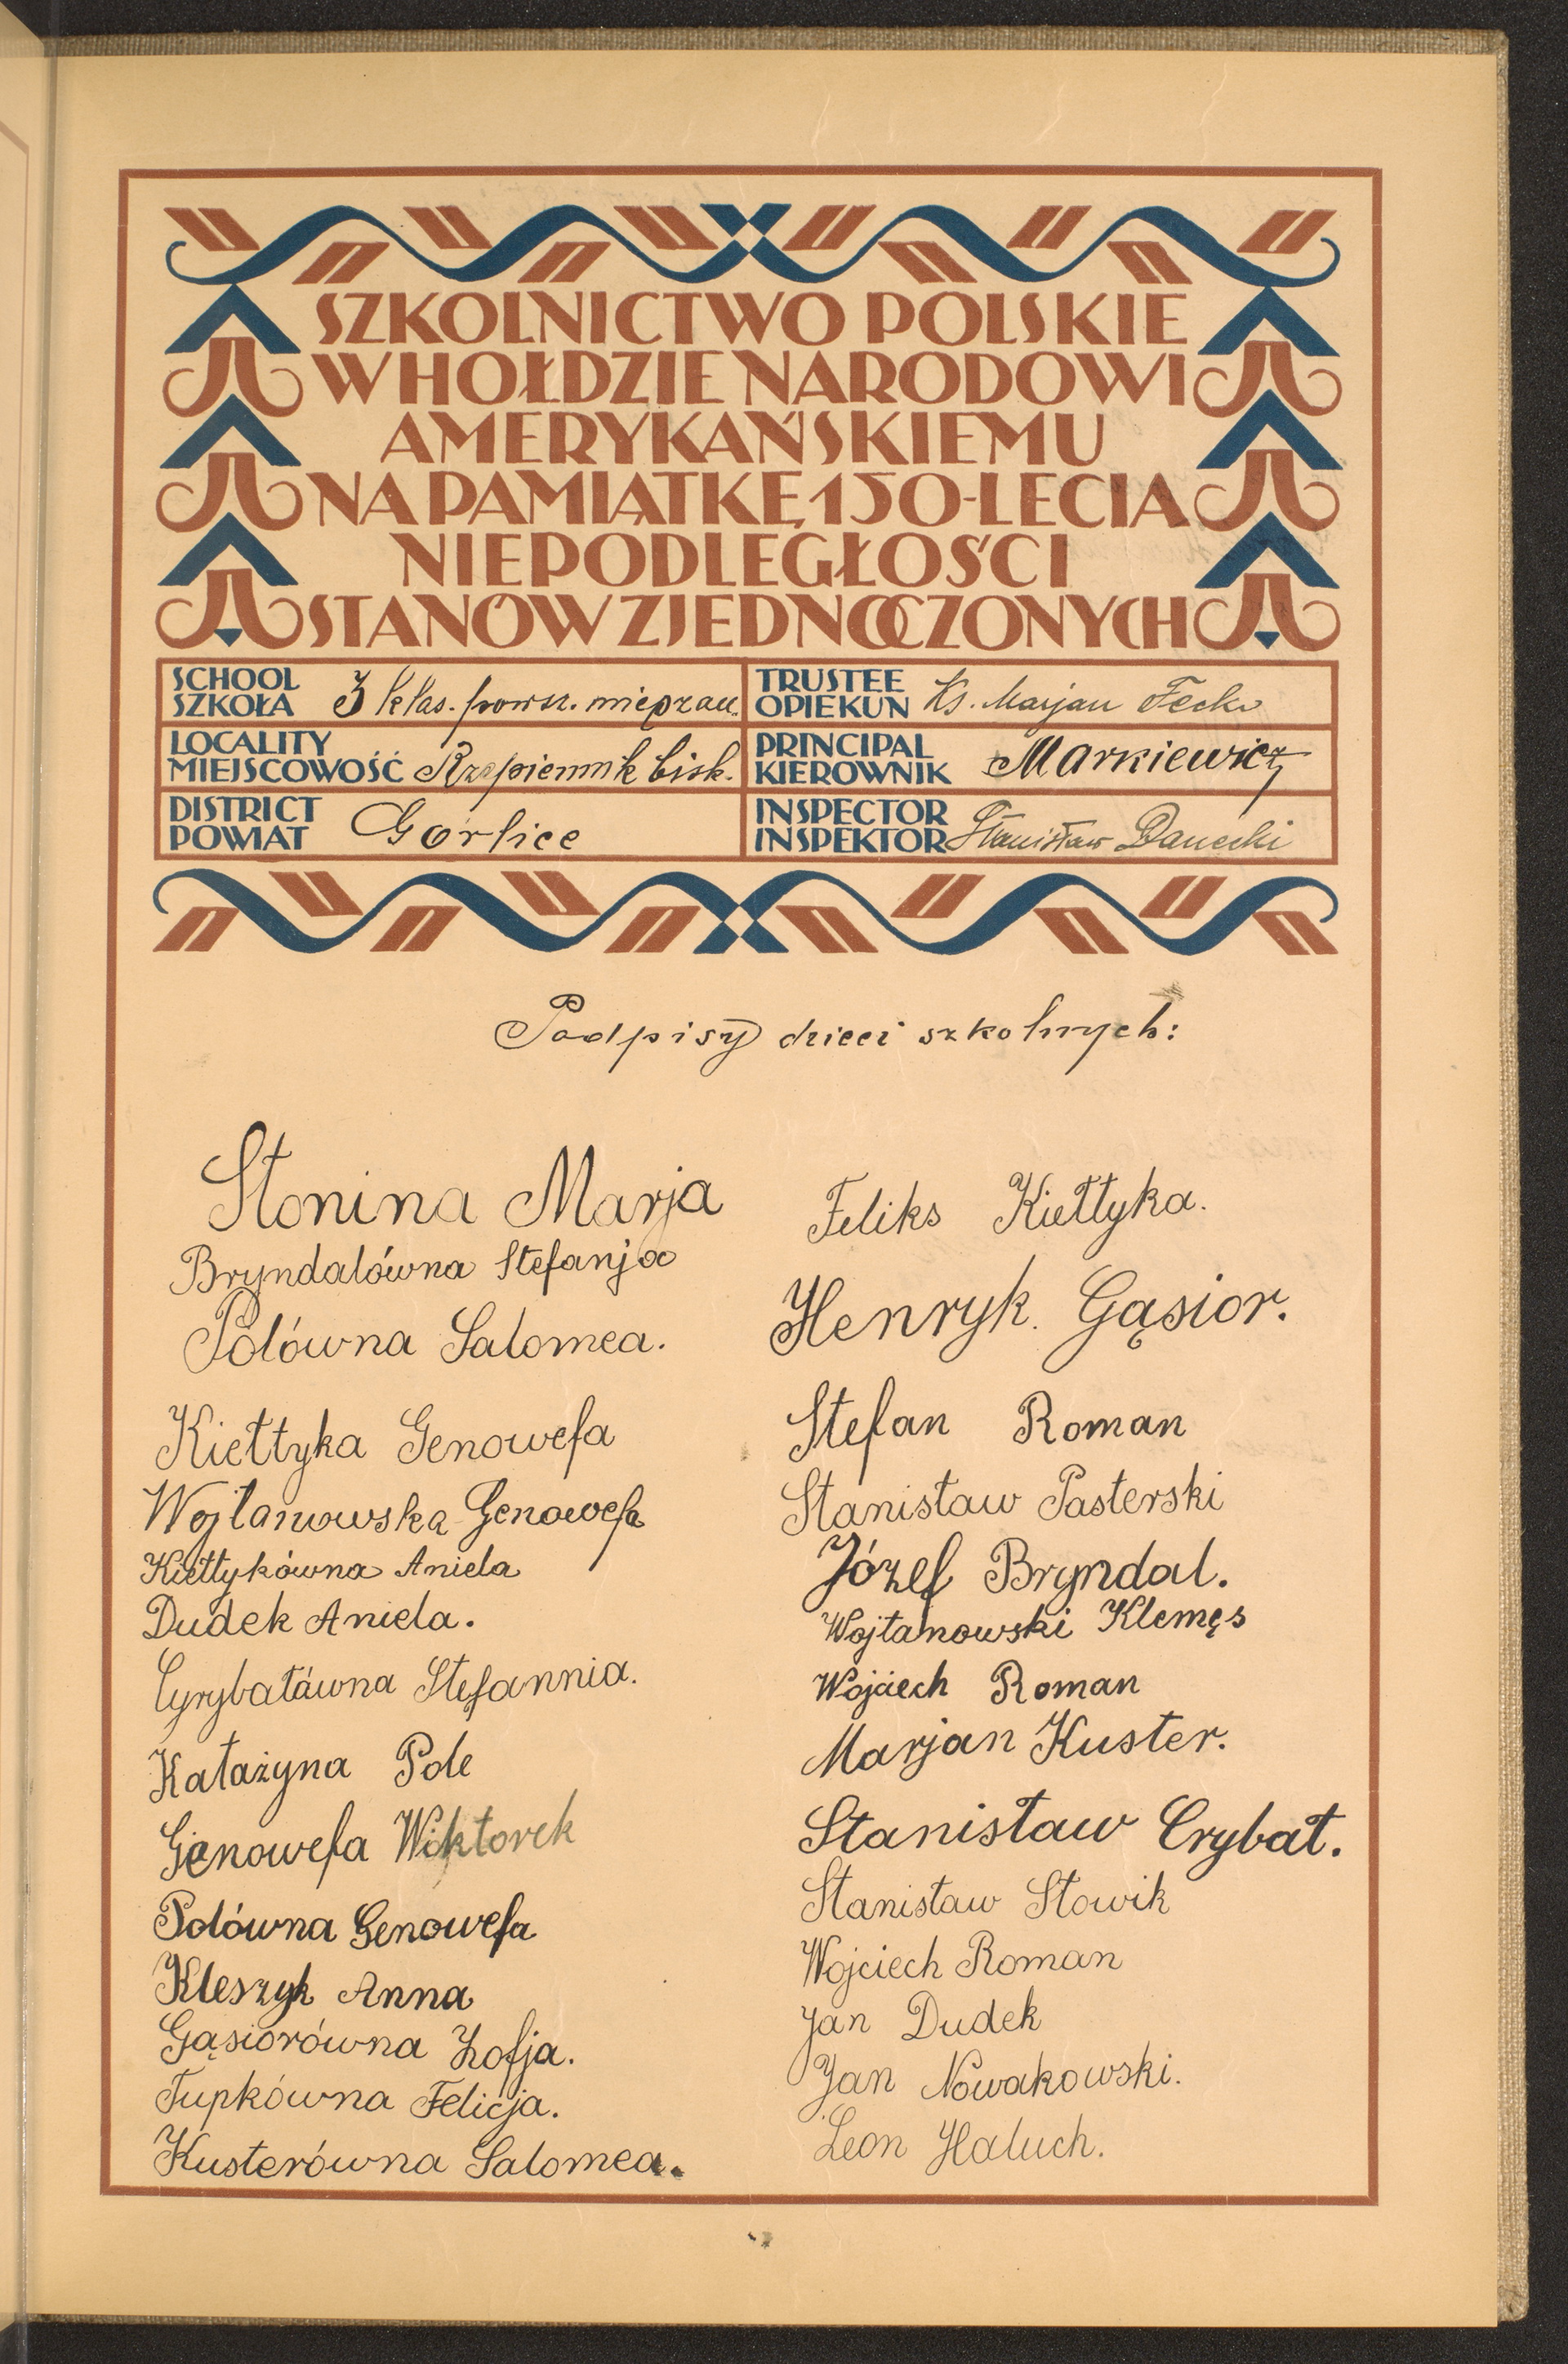 SZKOLNICTWO POLSKIE
W HOŁDZIE NARODOWI
AMERYKAŃSKIEMU
NA PAMIĄTKĘ 150-LECIA
NIEPODLEGŁOŚCI
STANÓW ZJEDNOCZONYCH
SCHOOL
SZKOŁA 3 klas. powsz. mieszan.
TRUSTEE
OPIEKUN Ks. Marjan Fecko
LOCALITY
MIEJSCOWOŚĆ Rzepiennik bisk.
PRINCIPAL
KIEROWNIK Markiewicz
DISTRICT
POWIAT Gorlice
INSPECTOR
INSPEKTOR Stanisław Danecki
Podpisy dzieci szkolnych:
Słonina Marja
Bryndalówna Stefanja
Polówna Salomea.
Kiełtyka Genowefa
Wojtanowska Genowefa
Kiełtykówna Aniela
Dudek Aniela.
Cyrybałówna Stefannia.
Katażyna Pole
Genowefa Wiktorek
Polówna Genowefa
Kleszyk Anna
Gąsiorówna Zofja.
Tupkówna Felicja.
Kusterówna Salomea.
Feliks Kiełtyka.
Henryk. Gąsior.
Stefan Roman
Stanisław Pasterski
Józef Bryndal.
Wojtanowski Klemęs
Wojciech Roman
Marjan Kuster.
Stanisław Crybat.
Stanisław Słowik
Wojciech Roman
Jan Dudek
Jan Nowakowski.
Leon Haluch.